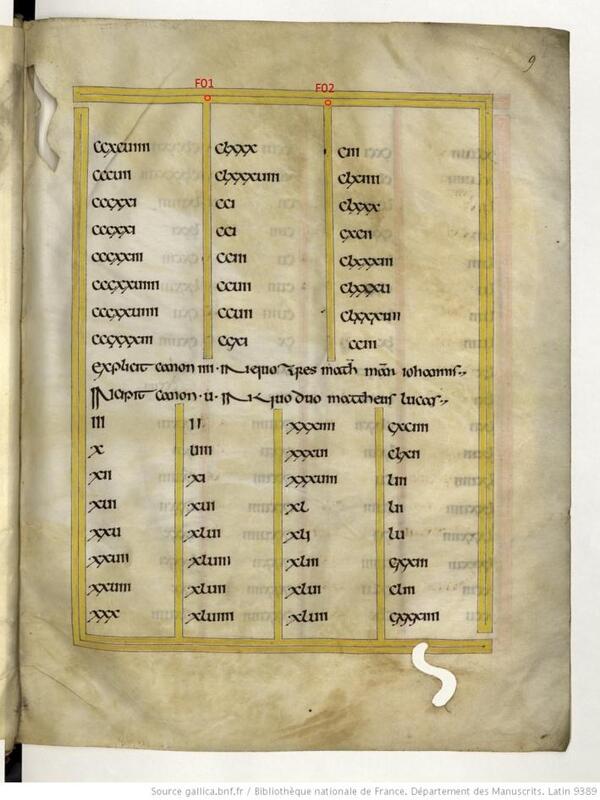 9
F01 F02
ccxcuiiii clxxx ciii
cccuii clxxxuiii clxiiii
cccxxi cci clxxx
cccxxi cci cxcii
cccxxiii cciii clxxxiii
cccxxuiiii ccuii clxxxu
cccxxuiiii ccuii clxxxuii
cccxxxiii ccxi cciii
explicit canon iiii · in quo tres math man iohannis
incipit canon · u · in quo duo mattheus lucas
iii ii xxxiiii cxciiii
x uiii xxxui clxii
xii xi xxxuiii liii
xui xui xl lii
xxu xlui xli lu
xxuii xluiii xliii cxxiii
xxuiii xluii xlui cliii
xxx xluiiii xluii cxxxiiii
Source gallica.bnf.fr / Bibliothèque nationale de France. Département des Manuscrits. Latin 9389